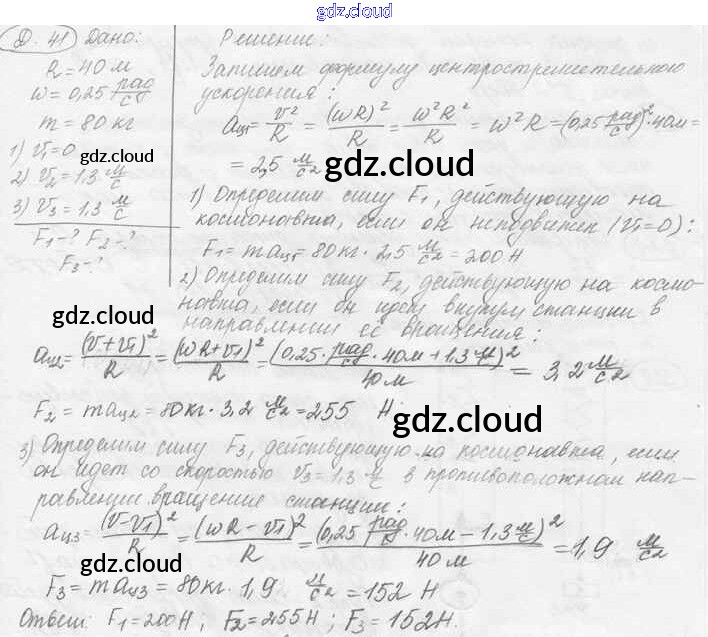 gdz.cloud
Д. 41 Дано:
R = 40 м
ω = 0,25 рад/с
m = 80 кг
1) v₁ = 0
2) v₂ = 1.3 м/с
3) v₃ = 1.3 м/с
F₁-? F₂-?
F₃-?
gdz.cloud
Решение:
Запишем формулу центростремительного
ускорения:
aц₁ = v²/R = (ωR)²/R = ω²R²/R = ω²R = (0,25 рад/с)²·40м =
= 2,5 м/с²
gdz.cloud
1) Определим силу F₁, действующую на
космонавта, если он неподвижен (v₁=0):
F₁ = maц₁ = 80кг · 2,5 м/с² = 200Н
2) Определим силу F₂, действующую на космо-
навта, если он идет внутри станции в
направлении её вращения:
gdz.cloud
aц₂ = (v+v₁)²/R = (ωR+v₁)²/R = (0,25 рад/с · 40м + 1.3 м/с)²/40м = 3,2 м/с²
F₂ = maц₂ = 80кг · 3,2 м/с² = 255 Н
gdz.cloud
3) Определим силу F₃, действующую на космонавта, если
он идет со скоростью v₃ = 1,3 м/с в противоположном нап-
равлении вращение станции:
aц₃ = (v-v₁)²/R = (ωR - v₁)²/R = (0,25 рад/с · 40м - 1.3 м/с)²/40м = 1,9 м/с²
gdz.cloud
gdz.cloud
F₃ = maц₃ = 80кг · 1,9 м/с² = 152 Н
Ответ: F₁=200Н; F₂=255Н; F₃=152Н.
gdz.cloud